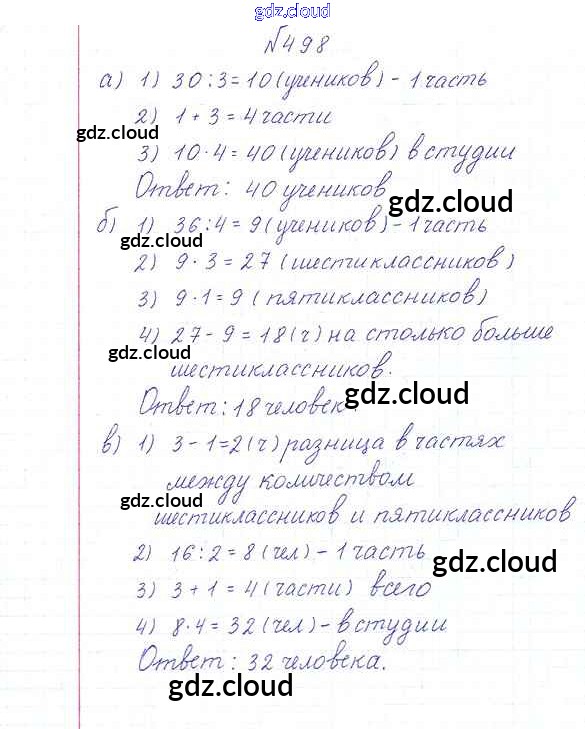 gdz.cloud
№498
а) 1) 30:3=10(учеников) - 1 часть
2) 1+3=4 части
gdz.cloud
3) 10·4=40(учеников) в студии
Ответ: 40 учеников
gdz.cloud
б) 1) 36:4=9(учеников) - 1 часть
gdz.cloud
2) 9·3=27 (шестиклассников)
3) 9·1=9 (пятиклассников)
4) 27-9=18(ч) на столько больше
gdz.cloud
шестиклассников.
gdz.cloud
Ответ: 18 человек.
в) 1) 3-1=2(ч) разница в частях
между количеством
gdz.cloud
шестиклассников и пятиклассников
2) 16:2=8(чел) - 1 часть
gdz.cloud
3) 3+1=4(части) всего
4) 8·4=32(чел) - в студии
Ответ: 32 человека.
gdz.cloud